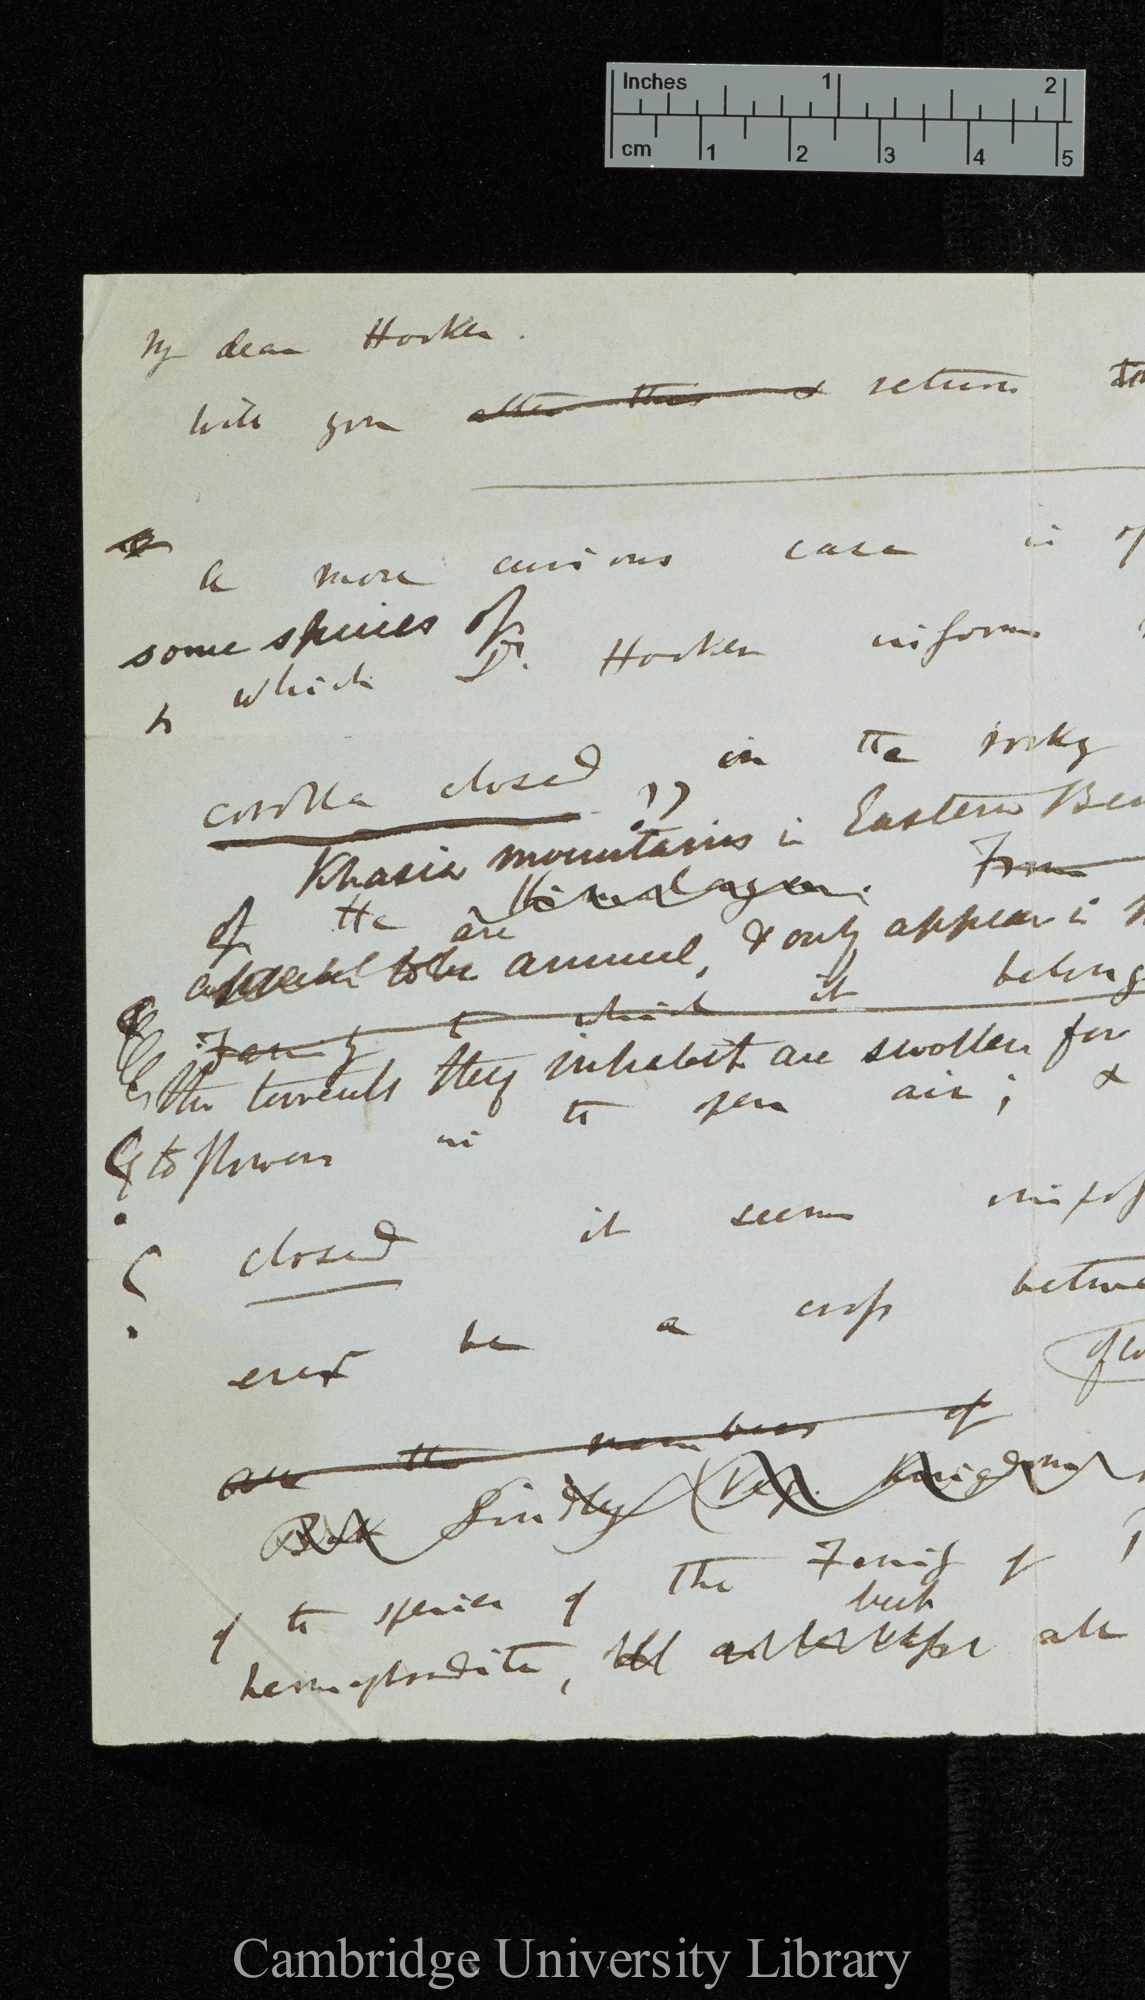 Inches 1 2
cm 1 2 3 4 5
My dear Hooker.
Will you after this & return
A more curious case is of
some species of
which Dr. Hooker informs
corolla closed !? in the rocky
Khasia mountains in Eastern Ben
of the Himalayan. From
are
appear to be annual, & only appear in
Family to which it belong
the torrents they inhabit are swollen for
to flowers in the open air; &
closed it seems impos
ever be a cross betwe
all the members of
Lindley (Veg. Kingdom
of the species of the Family of
but
hermaphrodite, all
Cambridge University Library